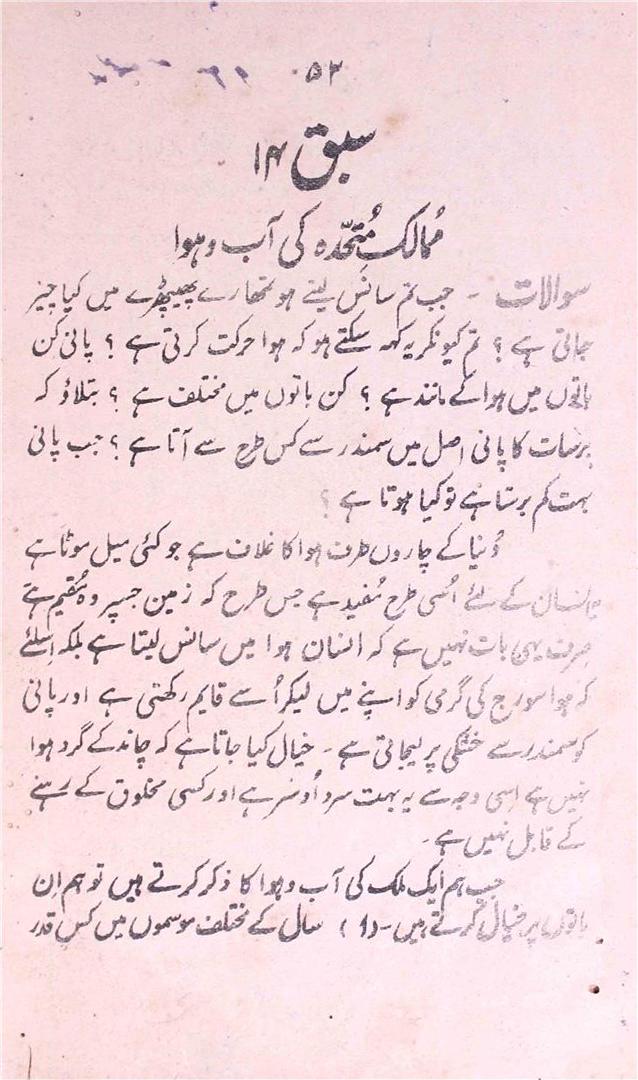 ۵۲
سبق ۱۴
مُمالکِ مُتحّدہ کی آب و ہوا
سوالات ۔ جب تم سانس لیتے ہو تمھارے پھیپھڑے میں کیا چیز
جاتی ہے ؟ تم کیونکر یہ کہہ سکتے ہو کہ ہوا حرکت کرتی ہے ؟ پانی کن
باتوں میں ہوا کے مانند ہے ؟ کن باتوں میں مختلف ہے ؟ بتلاؤ کہ
برسات کا پانی اصل میں سمندر سے کس طرح سے آتا ہے ؟ جب پانی
بہت کم برستا ہے تو کیا ہوتا ہے ؟
دُنیا کے چاروں طرف ہوا کا غلاف ہے جو کئی میل موٹا ہے
یہ انسان کے لئے اُسی طرح مُفید ہے جس طرح کہ زمین جسپر وہ مُقیم ہے
صِرف یہی بات نہیں ہے کہ انسان ہوا میں سانس لیتا ہے بلکہ اِسلئے
کہ ہوا سورج کی گرمی کو اپنے میں لیکر اُسے قایم رکھتی ہے اور پانی
کو سمندر سے خشکی پر لیجاتی ہے ۔ خیال کیا جاتا ہے کہ چاند کے گرد ہوا
نہیں ہے اِسی وجہ سے یہ بہت سرد اُوسر ہے اور کسی مخلوق کے رہنے
کے قابل نہیں ہے ۔
جب ہم ایک ملک کی آب و ہوا کا ذکر کرتے ہیں تو ہم اِن
باتوں پر خیال کرتے ہیں ۔ (۱) سال کے مختلف موسموں میں کس قدر